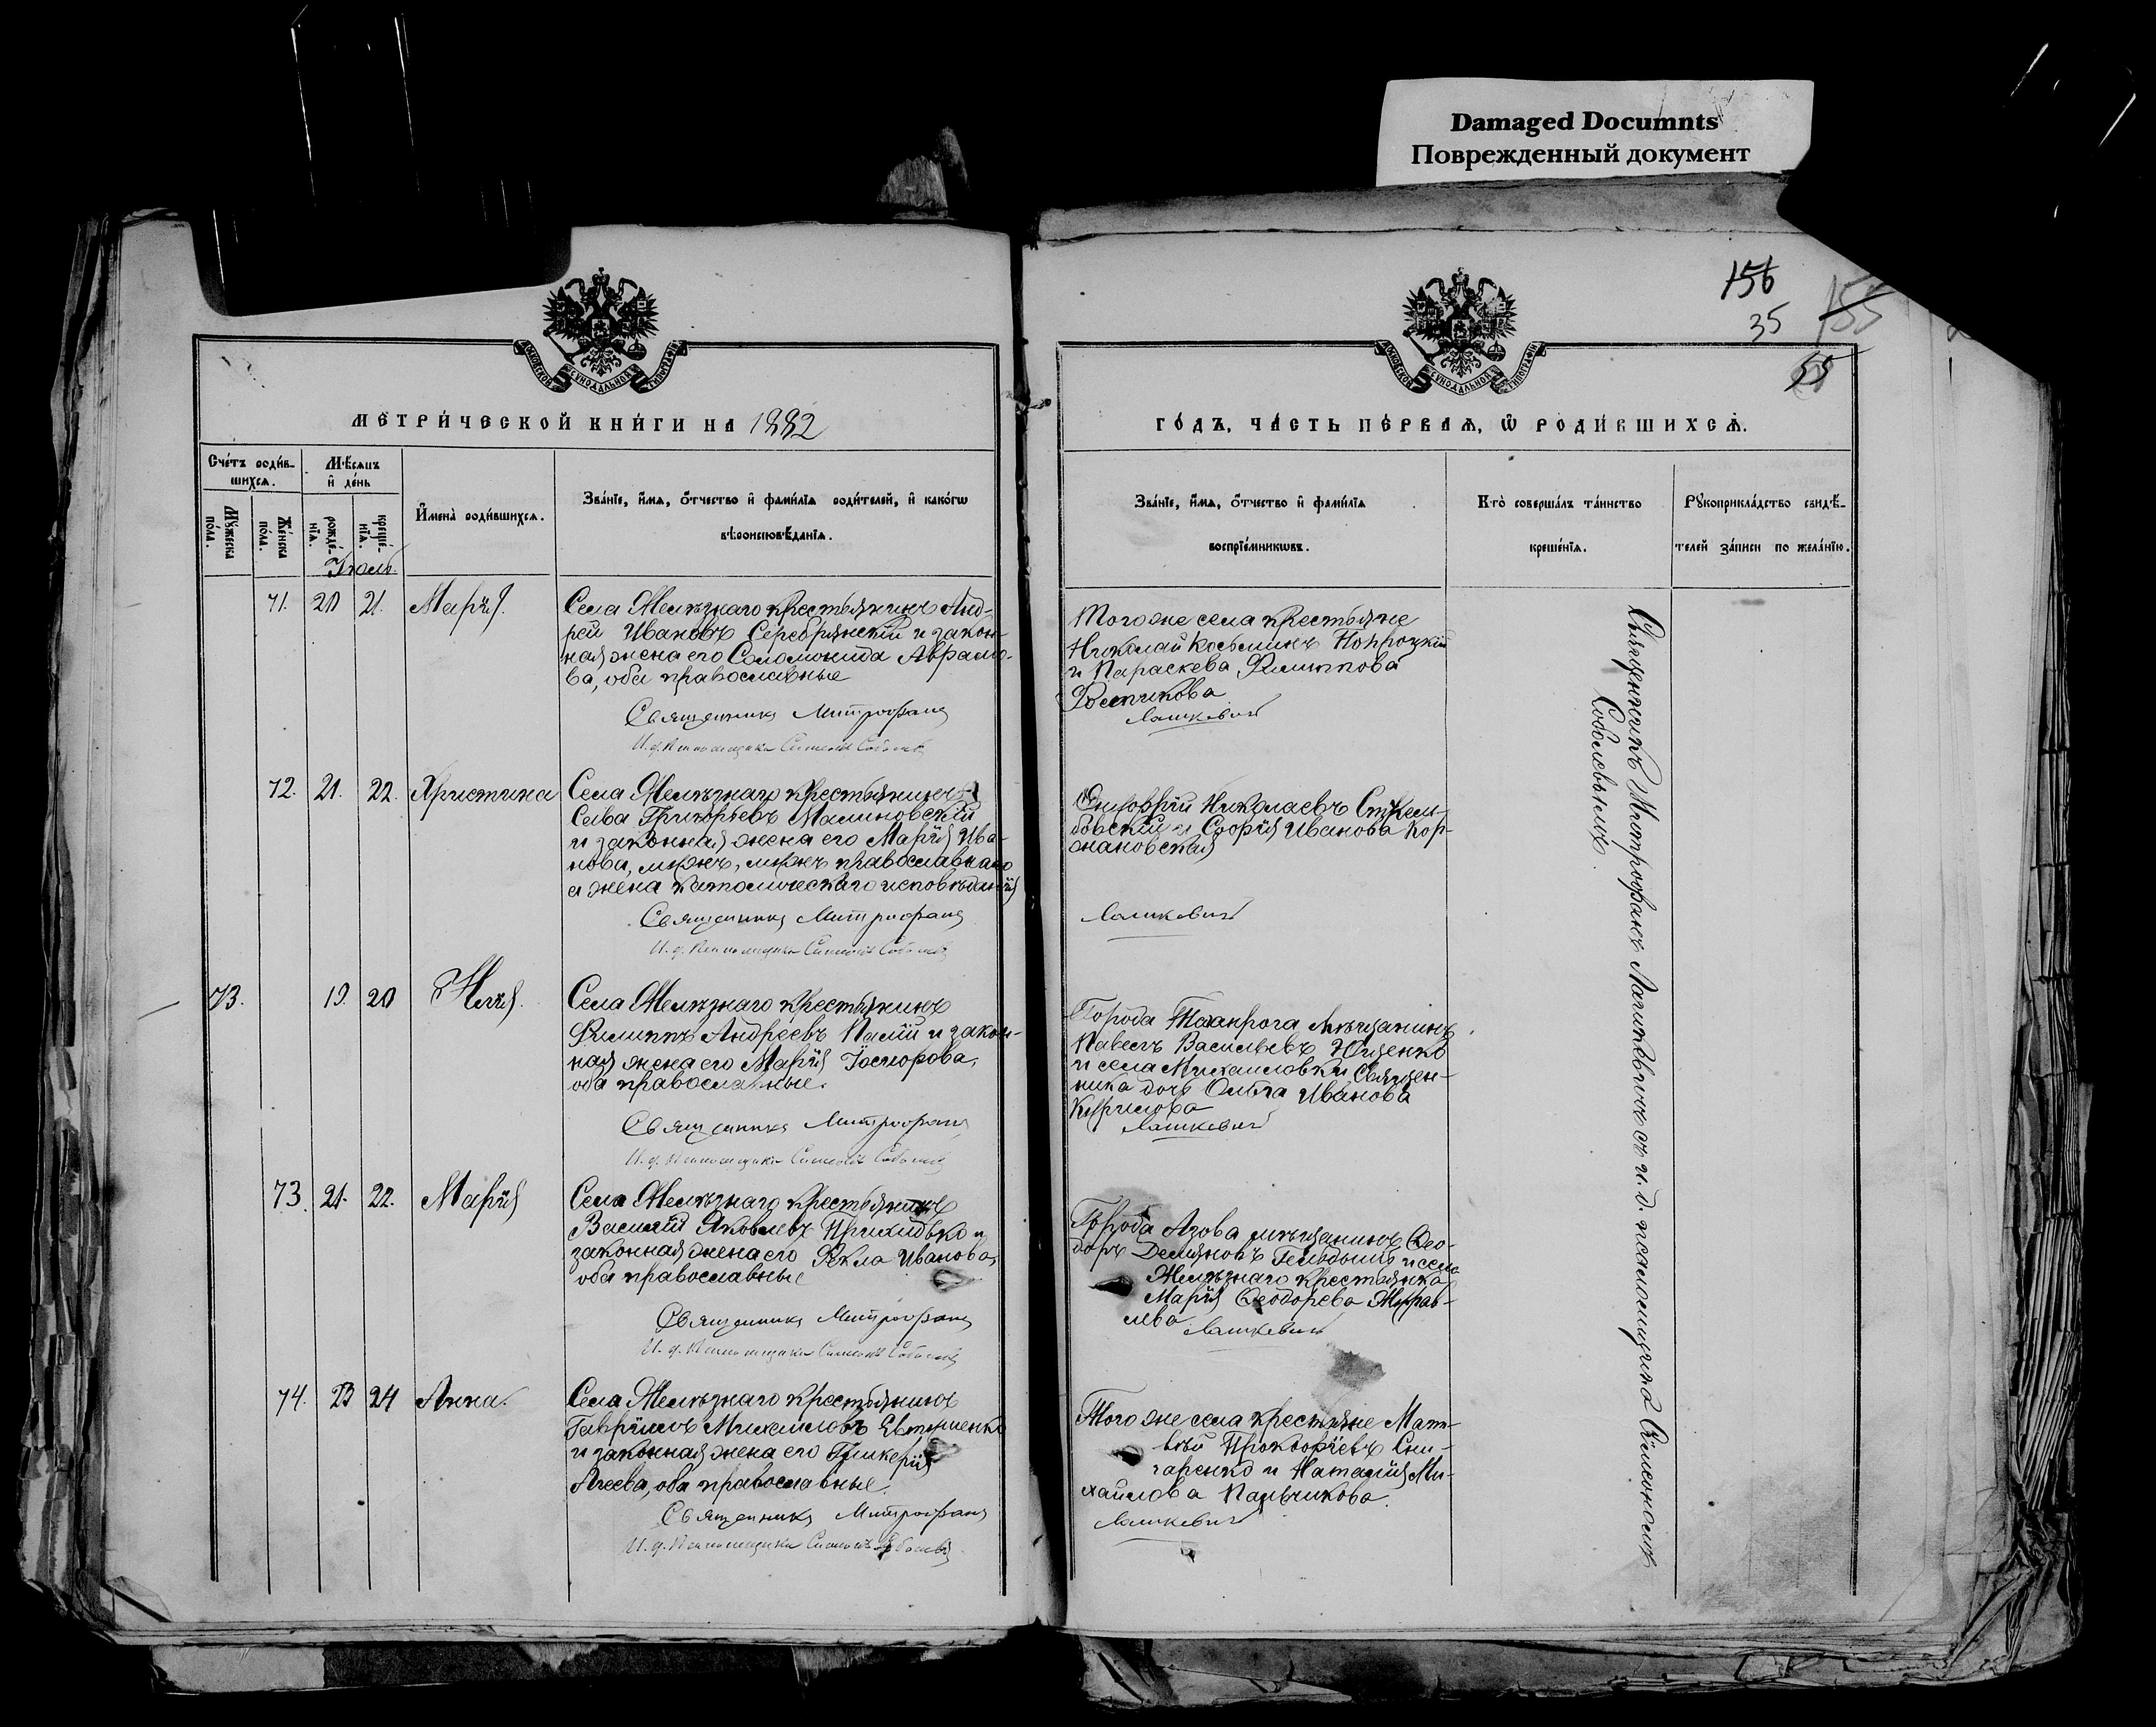 Damaged Documnts
Поврежденный документ
156
35
155
55
МОСКОВСКОЙ СѴНОДАЛЬНОЙ ТИПОГРАФІИ
МОСКОВСКОЙ СѴНОДАЛЬНОЙ ТИПОГРАФІИ
МЕТРИ́ЧЕСКОЙ КНИ́ГИ НА 1882
ГО́ДЪ, ЧА́СТЬ ПЕ́РВАЯ, Ѿ РОДИ́ВШИХСЯ.
Сче́тъ роди́в-
шихся.
Мꙋ́жеска по́ла.
Же́нска по́ла.
Мѣ́сяцъ
и҆ де́нь
рожде́-
нїя.
креще́-
нїя.
Іюль.
И҆мена̀ роди́вшихся.
Зва́нїе, и҆́мя, о҆́тчество и҆ фами́лїя роди́телей, и҆ како́гѡ
вѣроисповѣ́данїя.
Зва́нїе, и҆́мя, о҆́тчество и҆ фами́лїя
воспрїе́мникѡвъ.
Кто̀ соверша́лъ та́инство
креще́нїя.
Рꙋкоприкла́дство свидѣ́-
телей за́писи по жела́нїю.
71. 20 21. Марія.
Села Желѣзнаго крестьянинъ Анд-
рей Ивановъ Серебрянскій и закон-
ная жена его Соломонида Аврамо-
ва, оба православные
Священникъ Митрофанъ
И. д. Псаломщика Симеонъ Соболевъ
Тогоже села крестьяне
Николай Косьминъ
и Параскева Филиппова
Лашкевичъ
72. 21. 22. Христина
Села Желѣзнаго крестьянинъ
Савва Григорьевъ Малиновскій
и законная жена его Марія Ива-
нова, мужъ, мужъ православнаго
а жена католическаго исповѣданія
Священникъ Митрофанъ
И. д. Псаломщика Симеонъ Соболевъ
Онуфрій Николаевъ
и Софія Иванова Кор-
жановская
Лашкевичъ
73. 19. 20 Илія.
Села Желѣзнаго крестьянинъ
Филиппъ Андреевъ Палій и закон-
ная жена его Марія
оба православные.
Священникъ Митрофанъ
И. д. Псаломщика Симеонъ Соболевъ
Города Таганрога мѣщанинъ
Павелъ Васильевъ Ющенко
и села Михайловки Священ-
ника дочь Ольга Иванова
Кирилова
Лашкевичъ
73. 21. 22. Марія
Села Желѣзнаго крестьянинъ
Василій Яковлевъ Прихидько и
законная жена его Ѳекла Иванова,
оба православные
Священникъ Митрофанъ
И. д. Псаломщика Симеонъ Соболевъ
Города Азова мѣщанинъ Ѳео-
доръ Демяновъ и села
Желѣзнаго крестьянка
Марія Ѳеодорева Журав-
лева
Лашкевичъ
74. 23 24 Анна.
Села Желѣзнаго крестьянинъ
Гавріилъ Михайловъ Евтушенко
и законная жена его Гликерія
Агеева, оба православные.
Священникъ Митрофанъ
И. д. Псаломщика Симеонъ Соболевъ
Того же села крестьяне Мат-
вѣй Прокофіевъ Сни-
саренко и Наталія Ми-
хайлова Пальчикова.
Лашкевичъ
Священникъ Митрофанъ Лашкевичъ съ и. д. псаломщика Симеономъ
Соболевымъ.